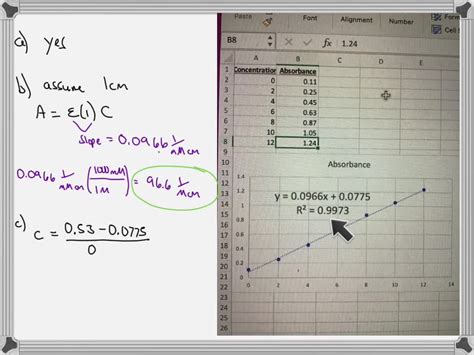 a) yes
b) assume 1cm
A = ε(1) C
slope = 0.0966 1/mMcm
0.0966 1/mMcm (1000mM/1M) = 96.6 1/Mcm
c) C = 0.53 - 0.0775
0
Paste
Font
Alignment
Number
Form
Cell S
B8
fx 1.24
A B C D E
1 Concentration Absorbance
2 0 0.11
3 2 0.25
4 4 0.45
5 6 0.63
6 8 0.87
7 10 1.05
8 12 1.24
9
10
11
12
13
14
15
16
17
18
19
20
21
22
23
24
25
26
Absorbance
1.4
1.2
1
0.8
0.6
0.4
0.2
0
y = 0.0966x + 0.0775
R² = 0.9973
0 2 4 6 8 10 12 14